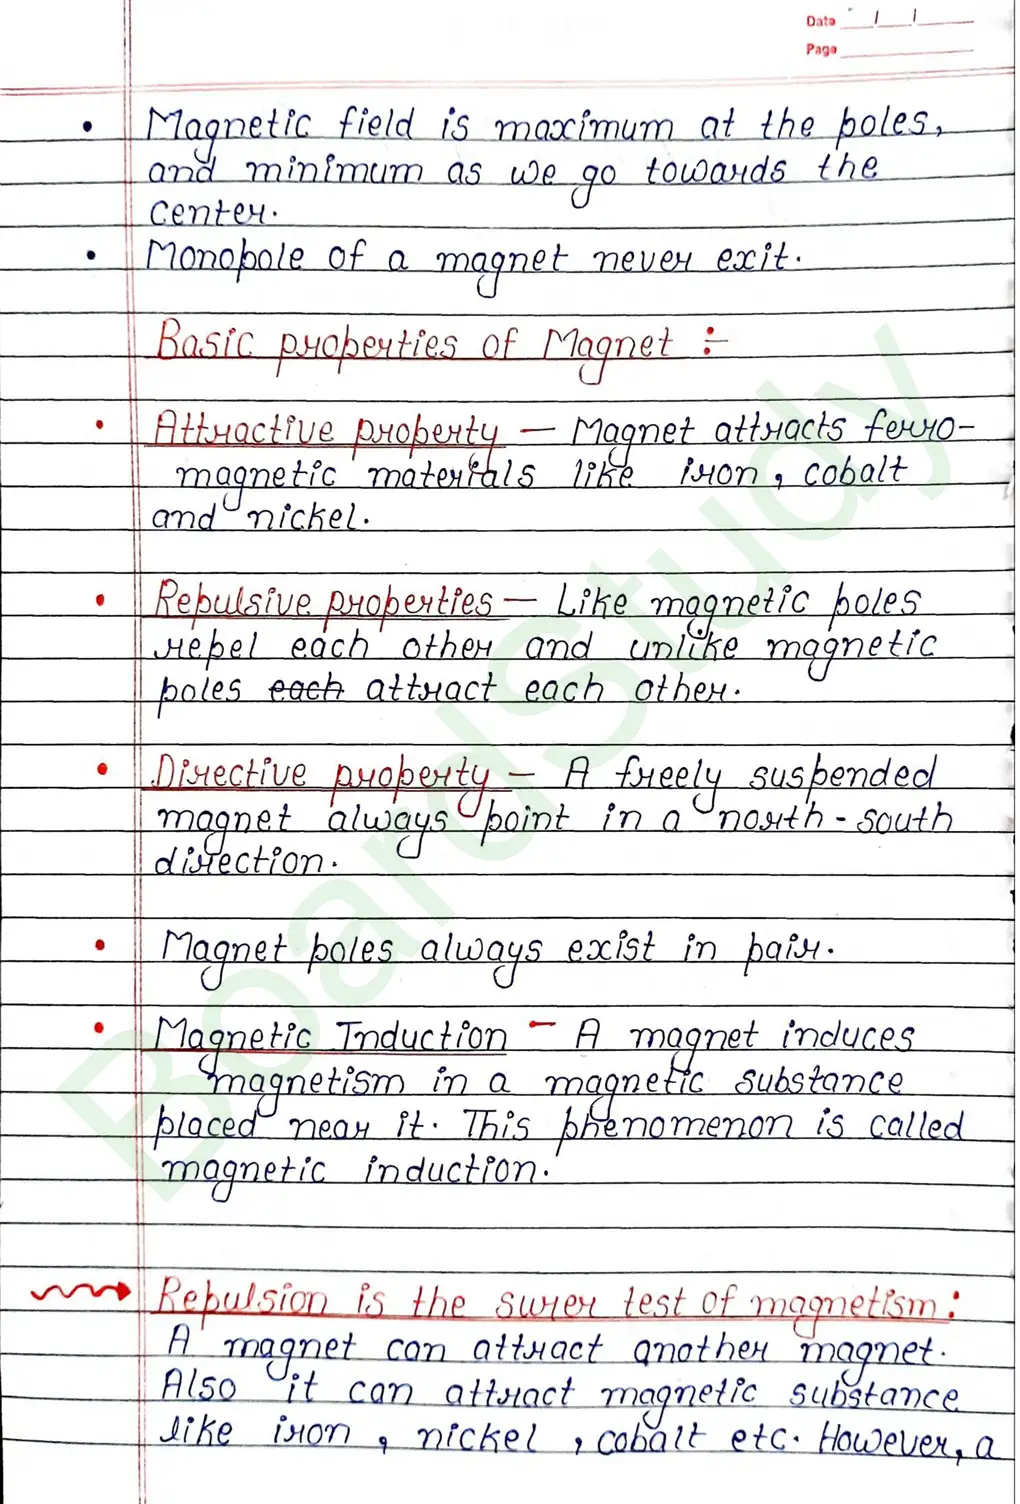 Date / /
Page
• Magnetic field is maximum at the poles,
and minimum as we go towards the
center.
• Monopole of a magnet never exit.
Basic properties of Magnet :-
• Attractive property — Magnet attracts ferro-
magnetic materials like iron, cobalt
and nickel.
• Repulsive properties — Like magnetic poles
repel each other and unlike magnetic
poles each attract each other.
• Directive property — A freely suspended
magnet always point in a north-south
direction.
• Magnet poles always exist in pair.
• Magnetic Induction — A magnet induces
magnetism in a magnetic substance
placed near it. This phenomenon is called
magnetic induction.
Repulsion is the surer test of magnetism:
A magnet can attract another magnet.
Also it can attract magnetic substance
like iron, nickel, cobalt etc. However, a
BoardStudy